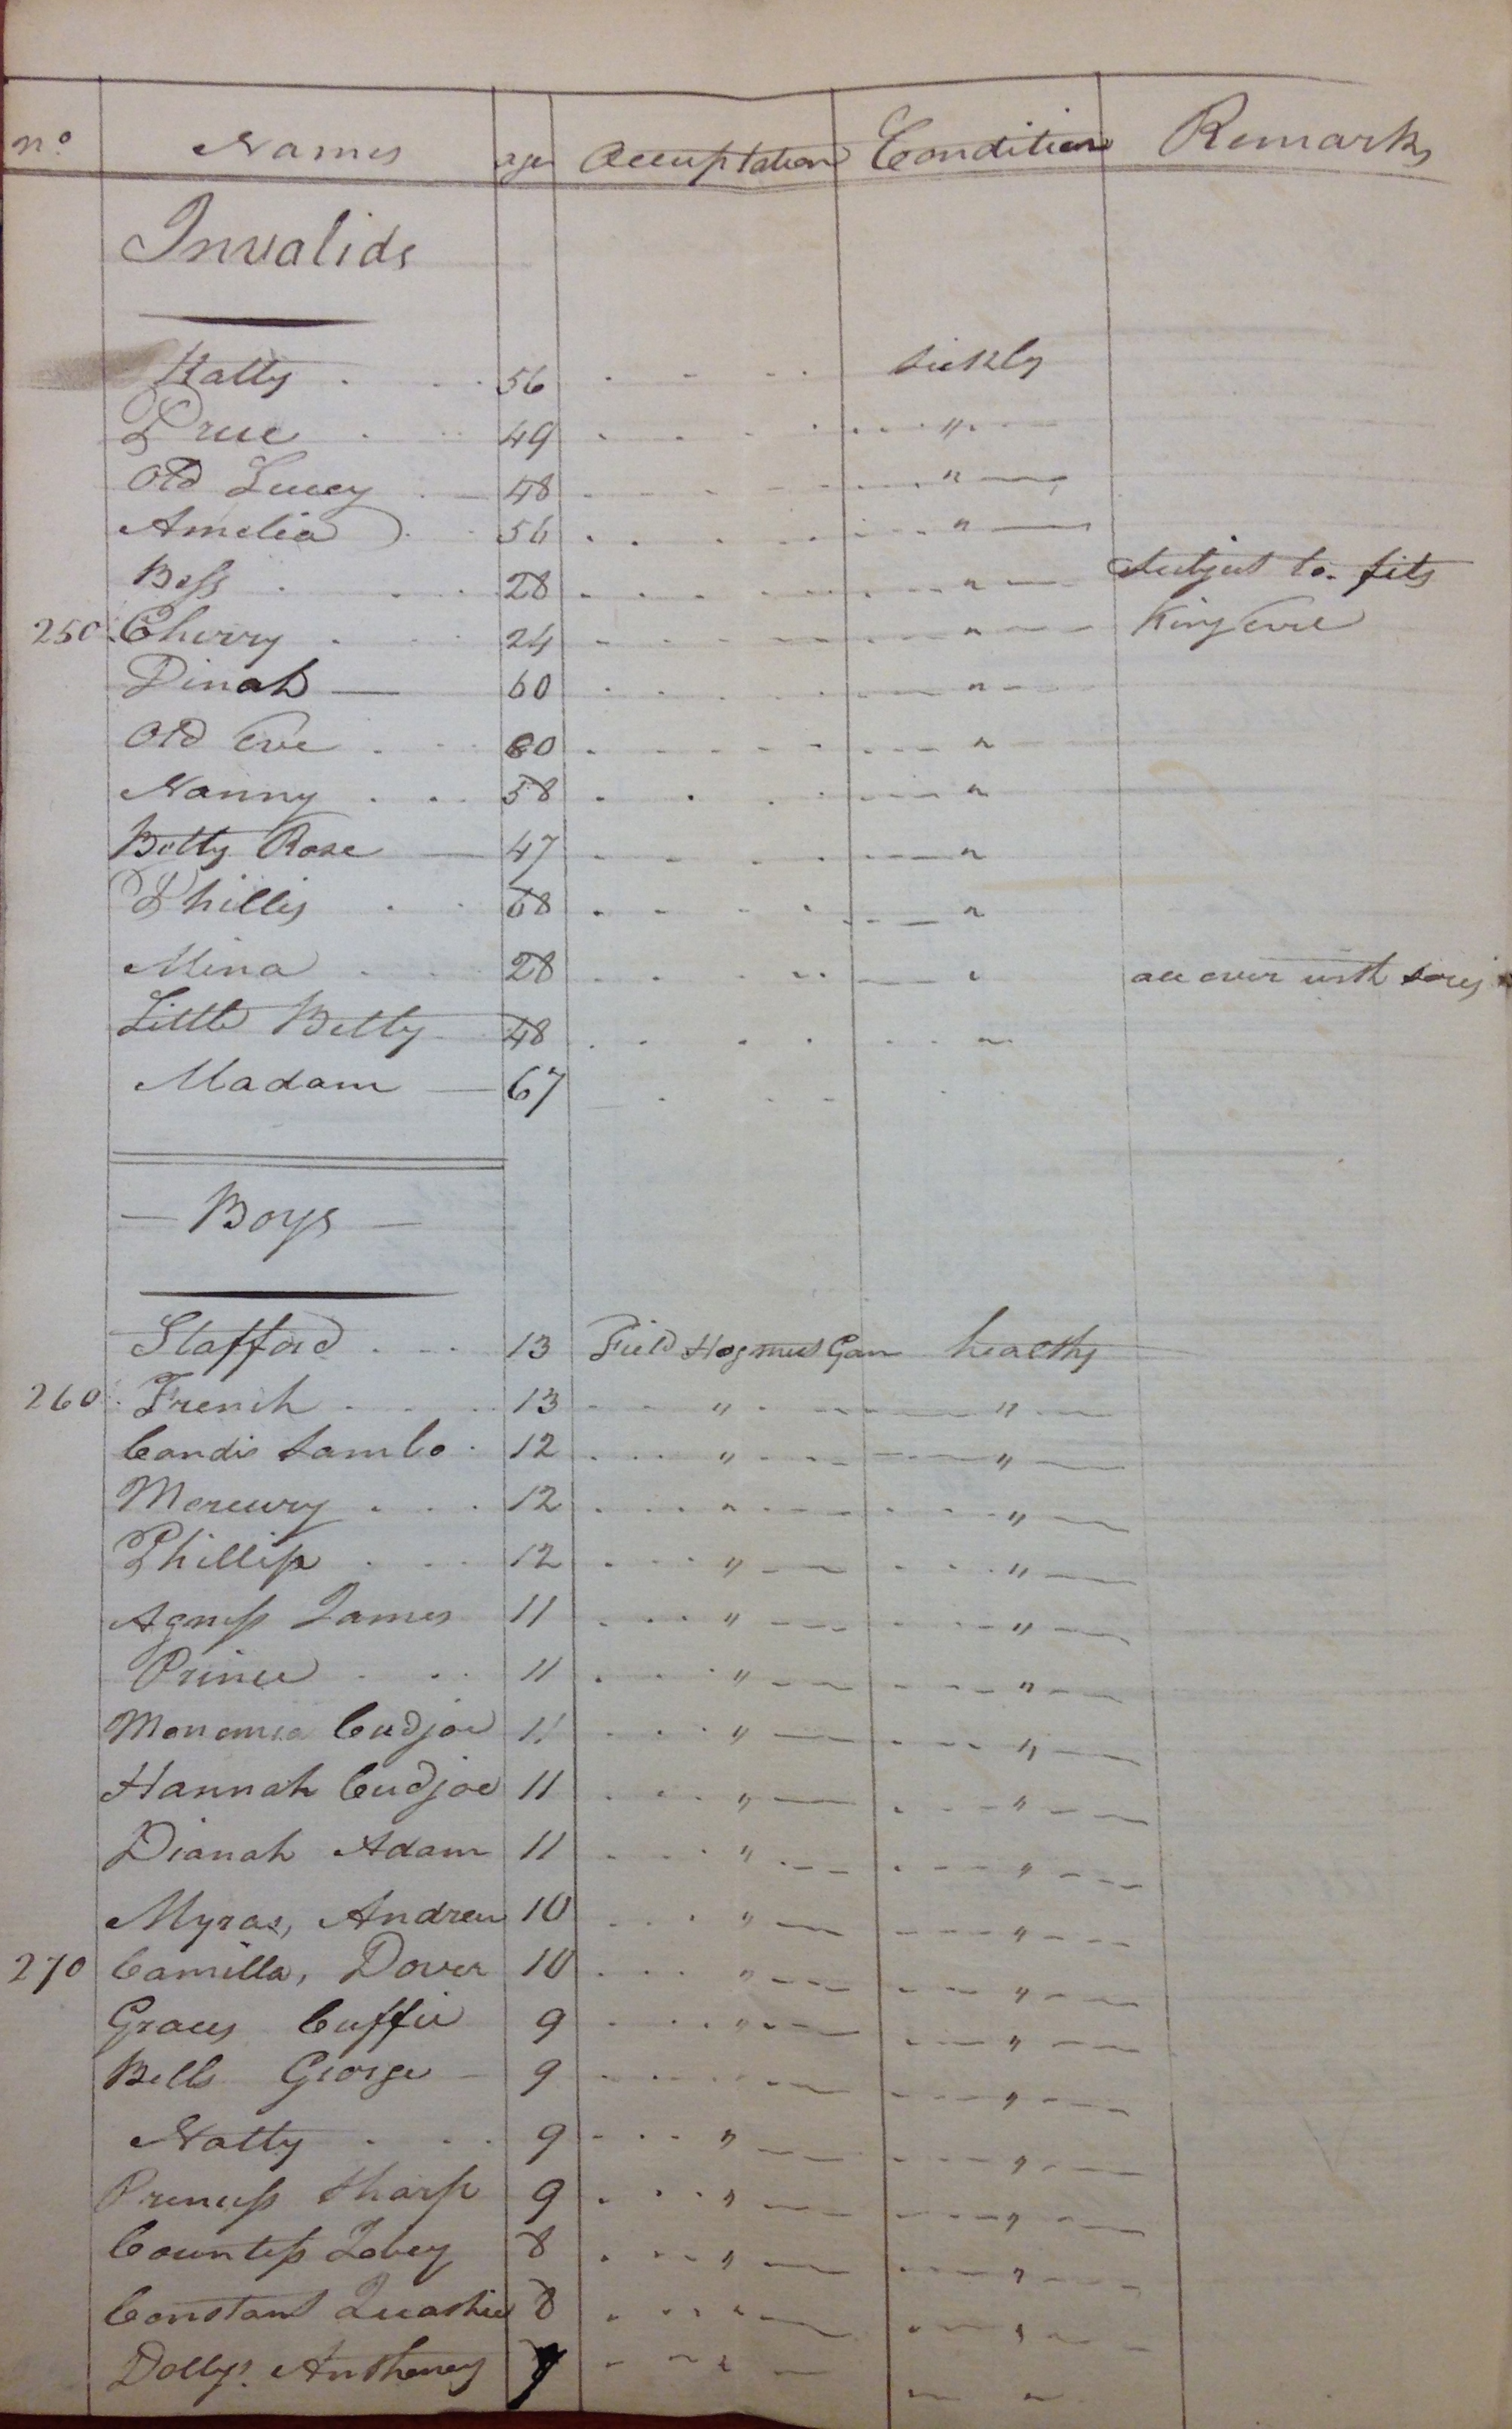 no. Names age Occuptation Condition Remarks
Invalids
Katty . . . 56 . - - . . sickly
Prue . . . 49 . - . - . . . . " . - -
Old Lucey . - 48 - - - - - - . . " - -
Amelia . . 56 . . . . . . - - " -
Bess . . . 28 . . . . . . . - " - Subject to fits
250 Cherry . . . 24 - - - - - - - - " - - King Evil
Dinah — 60 . . . . . . - - " - -
Old Eve . . . 60 . - - - - . - - "
Nanny . . . 58 . . . . - - - "
Betty Rose — 47 - - . . - - - "
Phillis . . 68 . - - . - — "
Mina . . . 28 . . . - . - — " all over with sores
Little Betty 48 . . . . . . "
Madam — 67 . - -
— Boys —
Stafford . - - 13 Field Hogmeat Gan healthy
260 French . . . 13 - - " . - - - - " - -
Candis Sambo . 12 . . . " . - - - - - " —
Mercury . . . 12 . . . " . - - . - . " —
Phillip . . . 12 . . . " - - . - . " —
Agness James 11 . . . " - - - . - - " - -
Prince . . . 11 . - - " - - - - - " - -
Cudjoe 11 . . . " — . - - " - -
Hannah Cudjoe 11 . . . " — . - - " - -
Dianah Adam 11 . . . " . - - . - - " - - -
Myras, Andrew 10 . . . " - - - - - " - - -
270 Camilla, Dover 10 . . . " - - - - - " - - -
Graces Cuffie 9 . . . " - - - . - - " - -
Bells George - 9 - . . . - - - - - " - - -
Natty . . . 9 - . . " — - - - " . - -
Princess Sharp 9 . . . " — - - - " - - -
Countess Tobey 8 . - - " — . - - " - - -
Constant Quashie 8 . . . " — . - - " - - -
Dolly's Antheney 7 - - " - - "